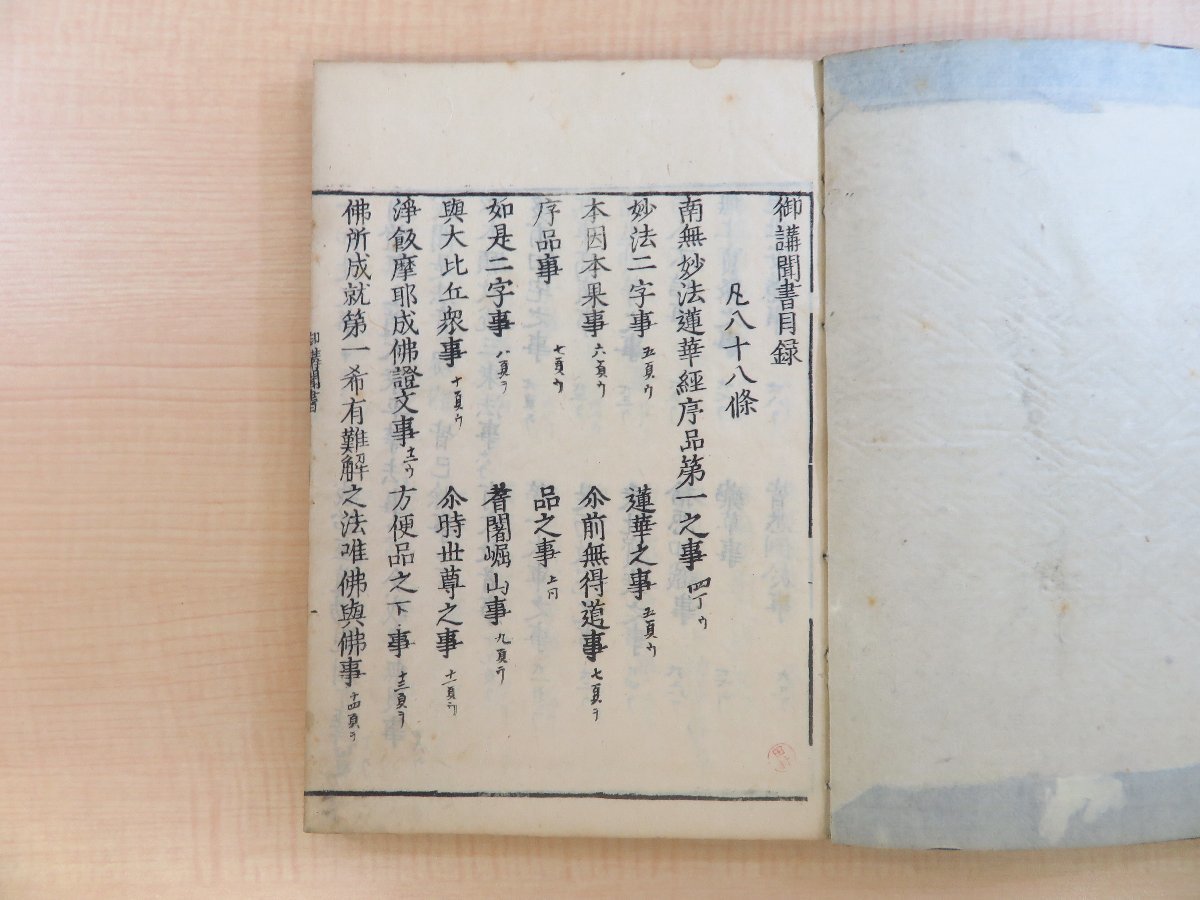 御講聞書目録
凡八十八條
南無妙法蓮華經序品第一之事 四丁ウ
妙法二字事 五頁ウ 蓮華之事 五頁ウ
本因本果事 六頁ウ 尒前無得道事 七頁ヲ
序品事 七頁ウ 品之事 上同
如是二字事 八頁ヲ 耆闍崛山事 九頁ヲ
與大比丘衆事 十頁ウ 尒時世尊之事 十一頁ヲ
淨飯摩耶成佛證文事 十二ウ 方便品之下事 十三頁ヲ
佛所成就第一希有難解之法唯佛與佛事 十四頁ヲ
御講聞書